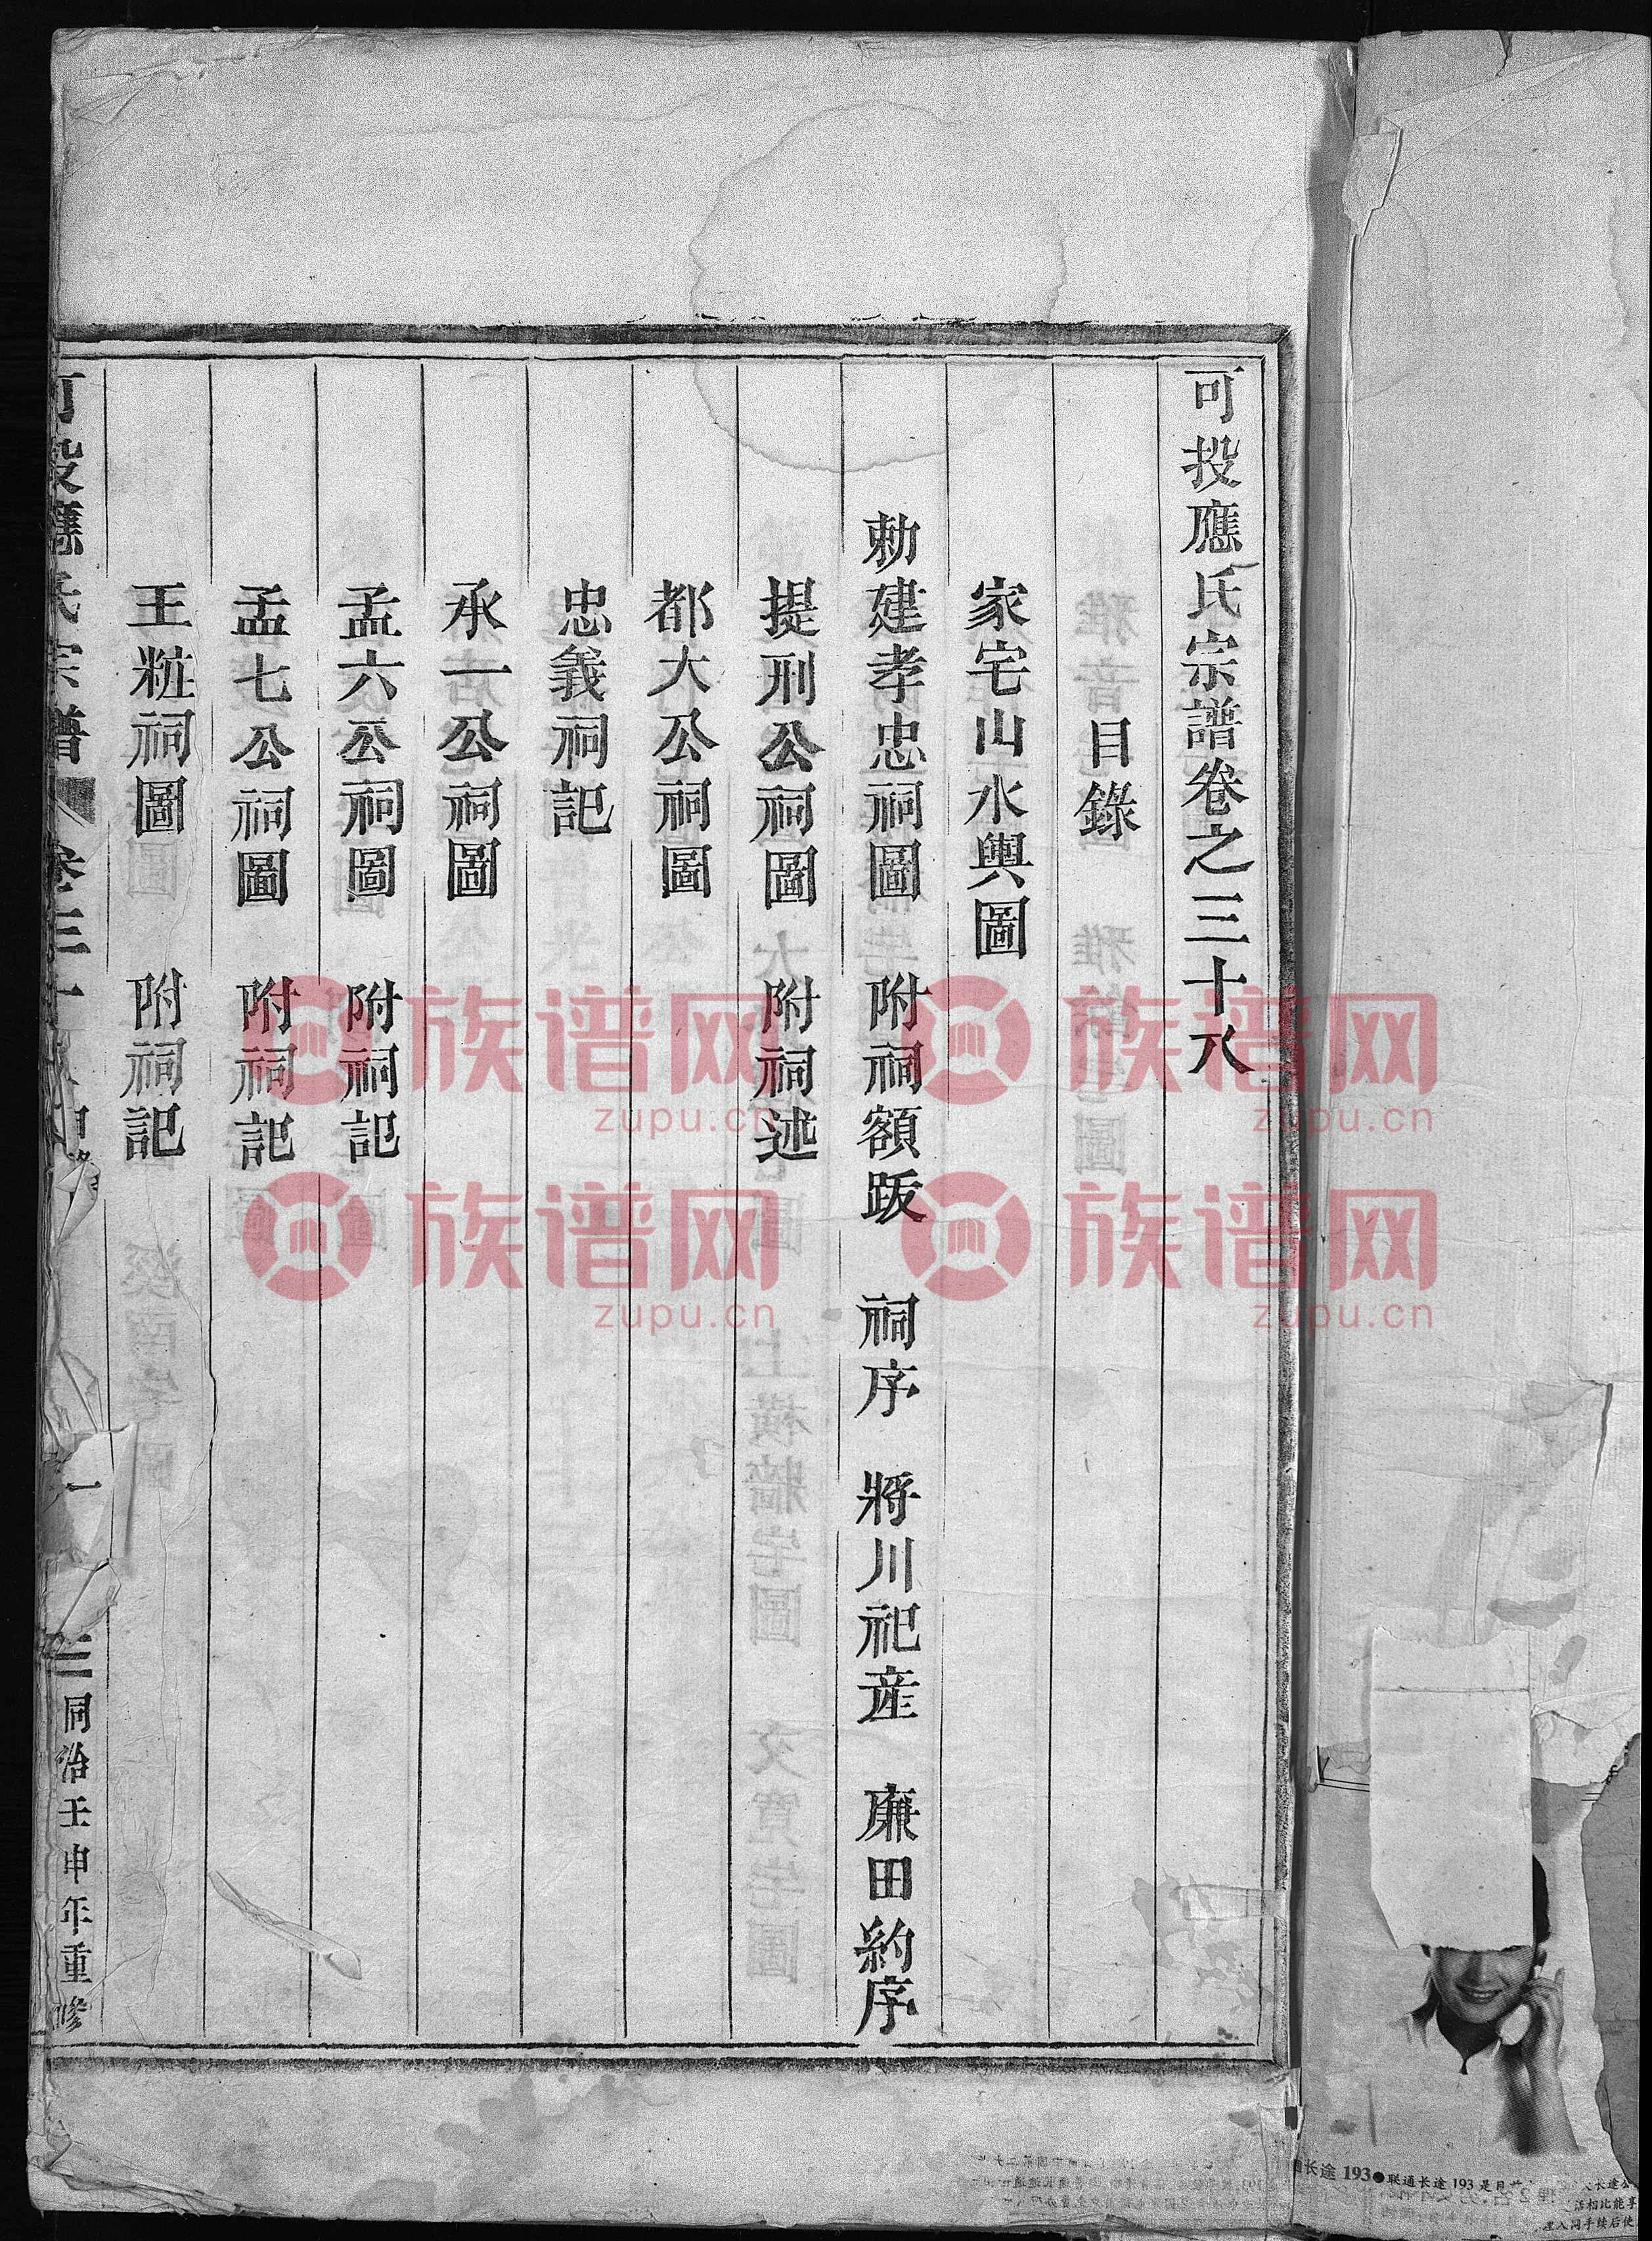 可投應氏宗譜卷之三十八
目錄
家宅山水輿圖
勅建孝忠祠圖 附祠額跋 祠序 將川祀産 廉田約序
提刑公祠圖 附祠述
都大公祠圖
忠義祠記
承一公祠圖
孟六公祠圖 附祠記
孟七公祠圖 附祠記
王粧祠圖 附祠記
可投應氏宗譜 卷三十 一 三 同治壬申年重修
族谱网 zupu.cn
族谱网 zupu.cn
族谱网 zupu.cn
族谱网 zupu.cn
长途 193●联通长途 193 是目